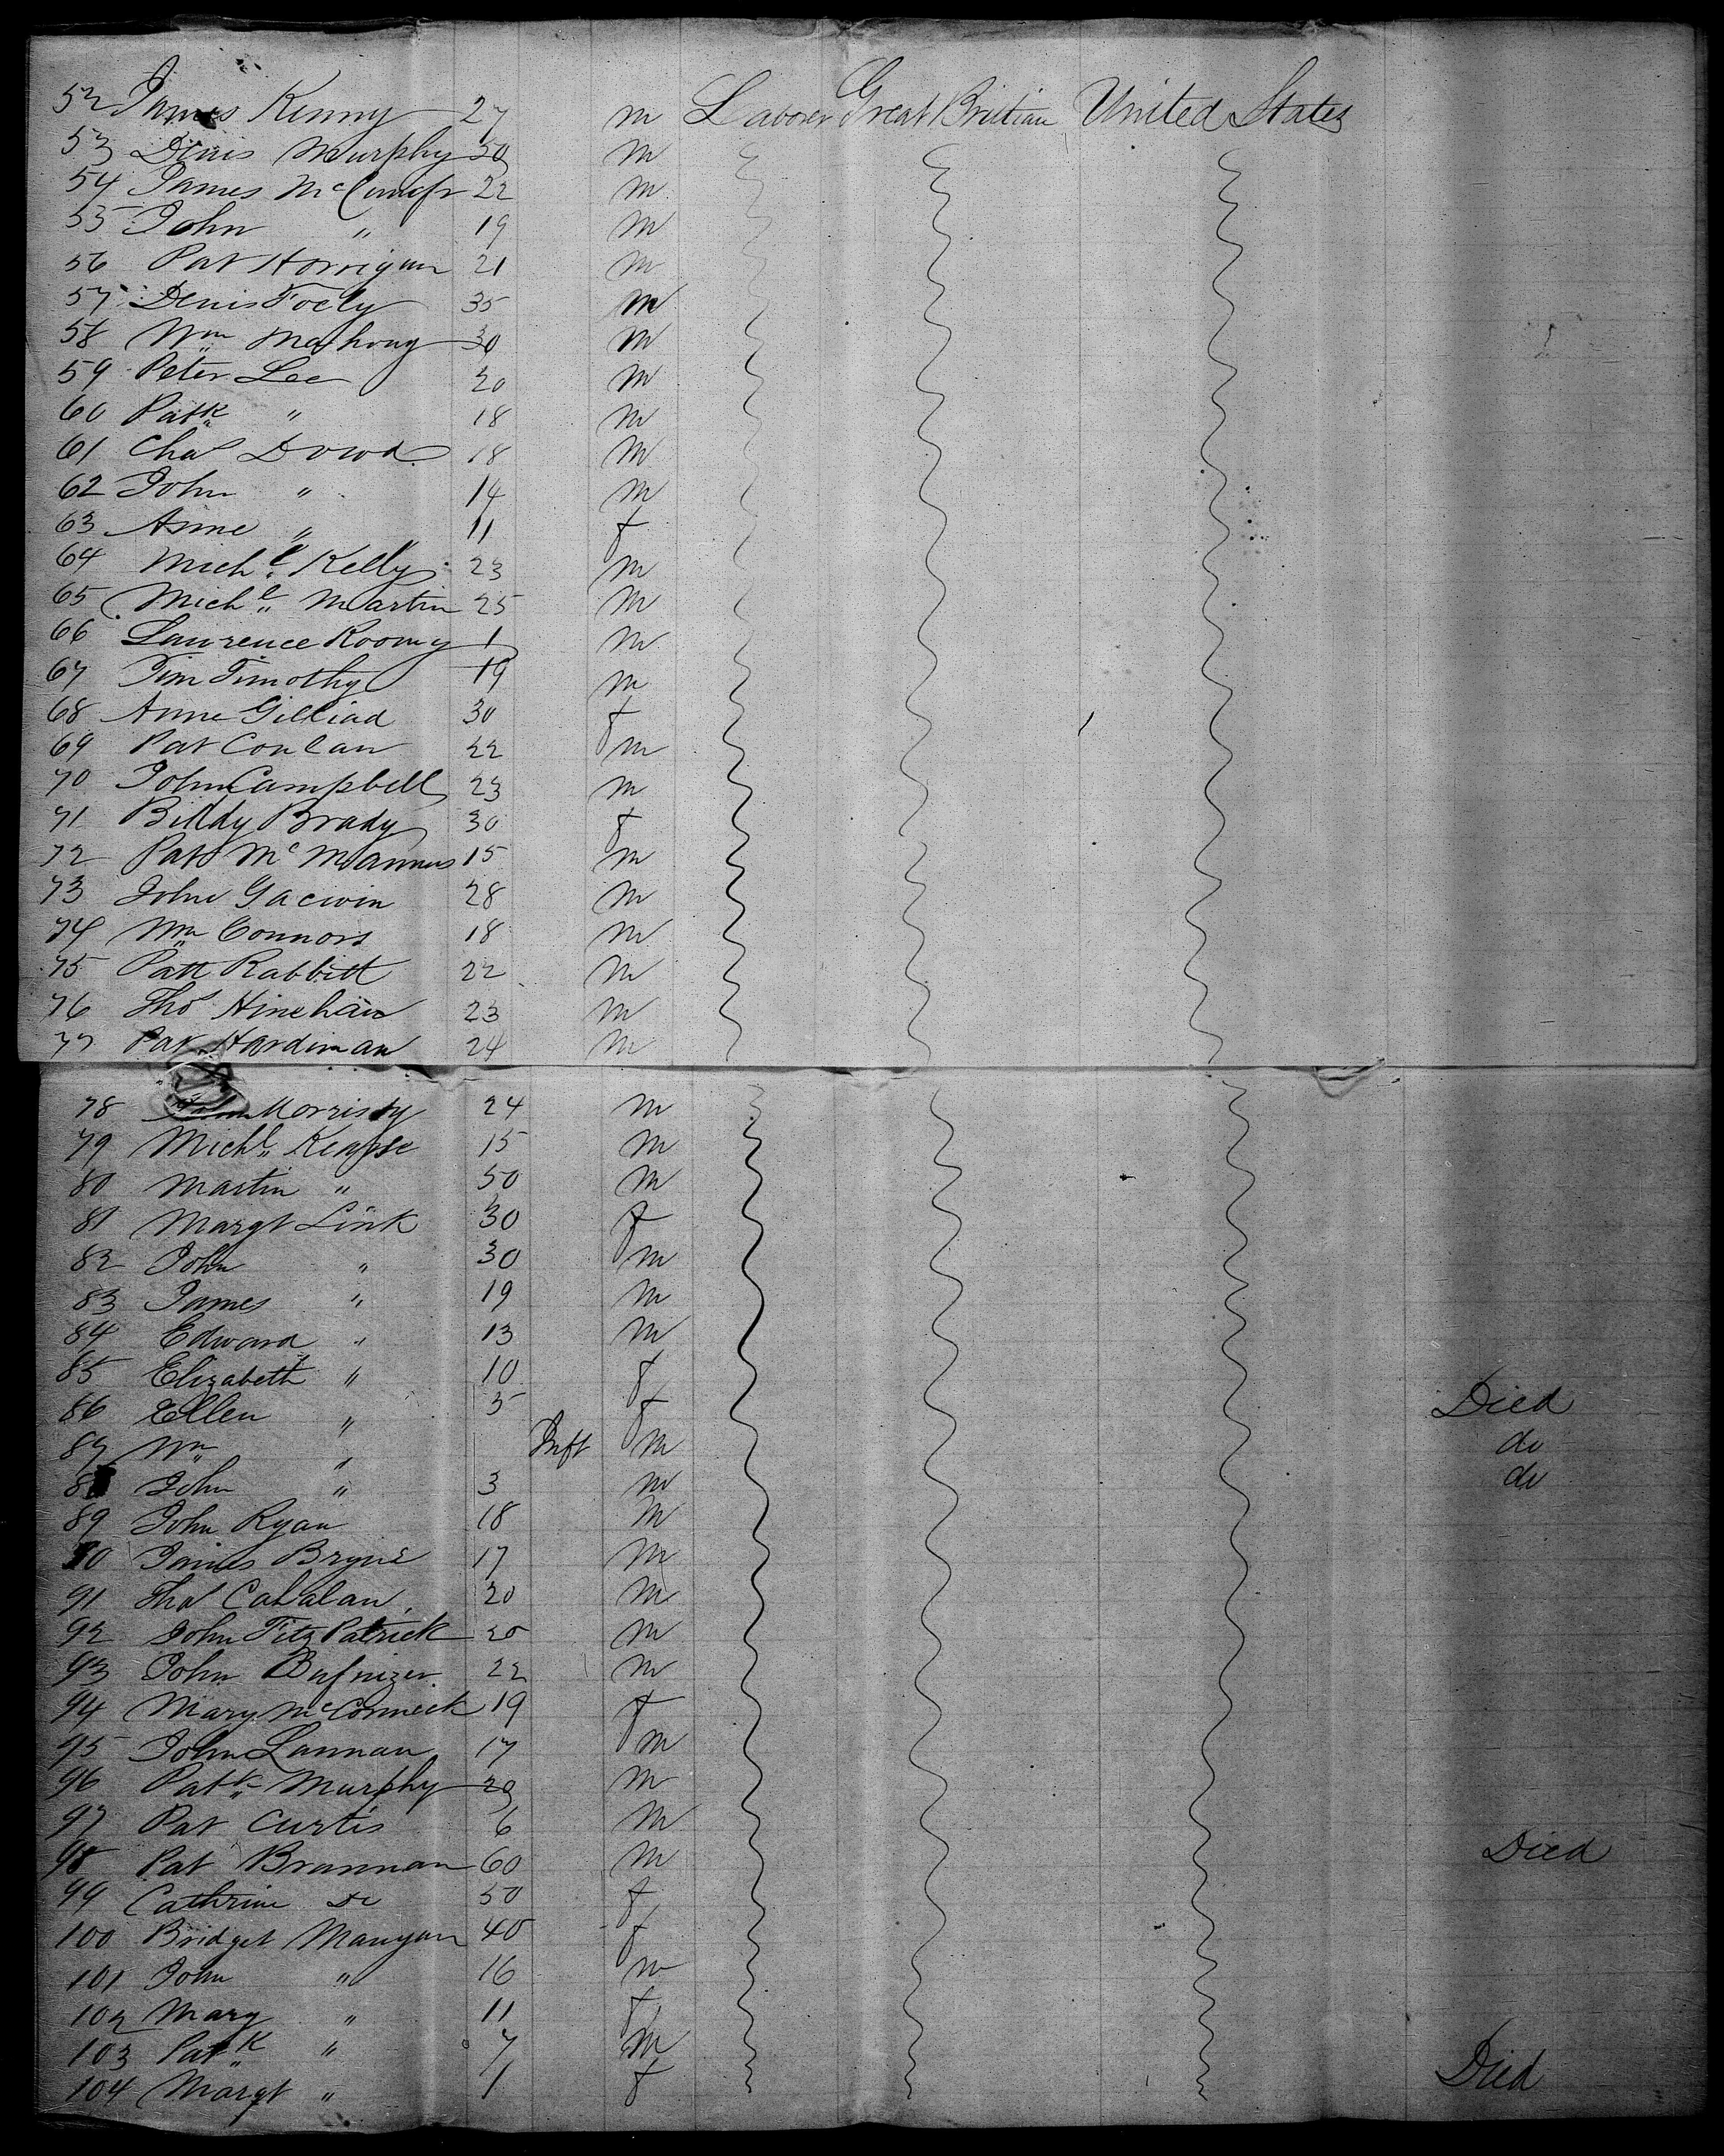 52 James Kenny 27 m Laborer Great Brittian United States
53 Dinis Murphy 30 m
54 James 22 m
55 John " 19 m
56 Pat Horrigan 21 m
57 Denis Foely 35 m
58 Wm Mahony 30 m
59 Peter Lee 20 m
60 Patk " 18 m
61 Chas Dowd 18 m
62 John " 14 m
63 Anne " 11 f
64 Michl Kelly 23 m
65 Michl Martin 25 m
66 Laurence Roomy 1 m
67 Tim Timothy 19 m
68 Anne Gilliad 30 f
69 Pat Conlan 22 m
70 John Campbell 23 m
71 Biddy Brady 30 f
72 Pat McMannus 15 m
73 John Gacwin 28 m
74 Wm Connors 18 m
75 Patt Rabbitt 22 m
76 Thos Hinehan 23 m
77 Pat Hardiman 24 m
78 John Morrissy 24 m
79 Michl 15 m
80 Martin " 50 m
81 Margt Link 30 f
82 John " 30 m
83 James " 19 m
84 Edward " 13 m
85 Elizabeth " 10 f
86 Ellen " 5 f Died
87 Wm " Inft m do
88 John " 3 m do
89 John Ryan 18 m
90 James Bryne 17 m
91 Thos Cahalan 20 m
92 John Fitz Patrick 20 m
93 John 22 m
94 Mary McCormeck 19 f
95 John Lannan 17 m
96 Patk Murphy 20 m
97 Pat Curtis 6 m
98 Pat Brannan 60 m Died
99 Cathrine Do 50 f
100 Bridget Mangan 40 f
101 John " 16 m
102 Mary " 11 f
103 Patk " 7 m
104 Margt " 1 f Died